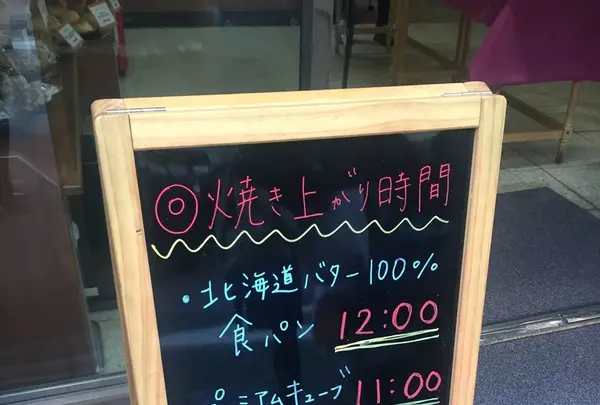 ◎焼き上がり時間
・北海道バター100%
食パン 12:00
アムキューブ 11:00